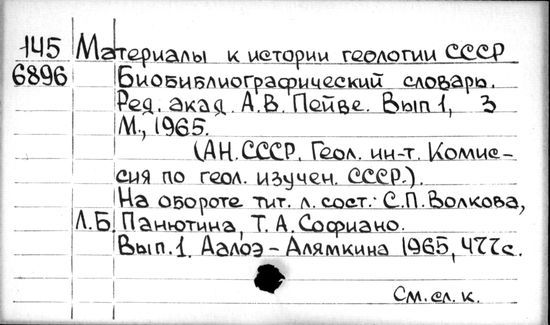 145 Материалы к истории геологии СССР
6896 Биобиблиографический словарь.
Ред. акад. А.В. Пейве. Вып 1, 3
М., 1965.
(АН.СССР. Геол. ин-т. Комис-
сия по геол. изучен. СССР.).
На обороте тит. л. сост.: С.П. Волкова,
Л.Б. Панютина, Т.А. Софиано.
Вып. 1. Аалоэ - Алямкина 1965, 477 с.
См. сл. к.